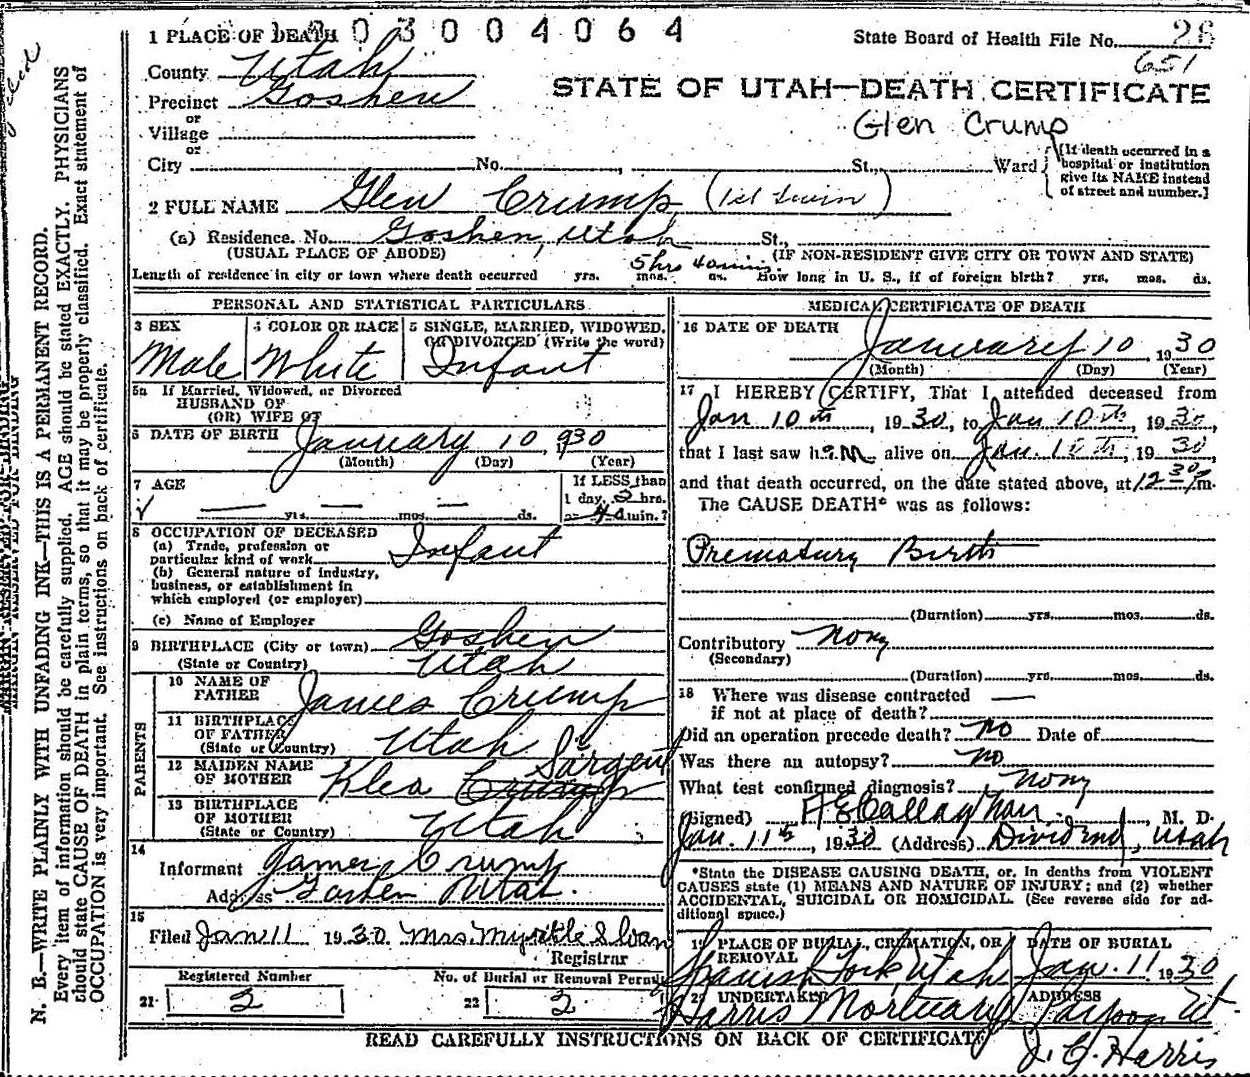 1 PLACE OF DEATH 03004064
State Board of Health File No. 26
651
County Utah
STATE OF UTAH—DEATH CERTIFICATE
Precinct Goshen
Glen Crump
or
Village
or
City No. St., Ward
[If death occurred in a hospital or institution give its NAME instead of street and number.]
2 FULL NAME Glen Crump (1st twin)
(a) Residence. No. Goshen, Utah St.,
(USUAL PLACE OF ABODE) (IF NON-RESIDENT GIVE CITY OR TOWN AND STATE)
5 hrs 40 mins.
Length of residence in city or town where death occurred yrs. mos. ds. How long in U. S., if of foreign birth? yrs. mos. ds.
PERSONAL AND STATISTICAL PARTICULARS
3 SEX Male
4 COLOR OR RACE White
5 SINGLE, MARRIED, WIDOWED, OR DIVORCED (Write the word) Infant
5a If Married, Widowed, or Divorced
HUSBAND OF
(OR) WIFE OF
6 DATE OF BIRTH January 10, 930
(Month) (Day) (Year)
7 AGE — yrs. — mos. — ds.
If LESS than
1 day, 5 hrs.
or 40 min.?
8 OCCUPATION OF DECEASED
(a) Trade, profession or
particular kind of work Infant
(b) General nature of industry,
business, or establishment in
which employed (or employer)
(c) Name of Employer
9 BIRTHPLACE (City or town) Goshen
(State or Country) Utah
PARENTS
10 NAME OF
FATHER James Crump
11 BIRTHPLACE
OF FATHER
(State or Country) Utah
12 MAIDEN NAME
OF MOTHER Klea Crump Sargent
13 BIRTHPLACE
OF MOTHER
(State or Country) Utah
14
Informant James Crump
Address Goshen Utah.
15
Filed Jan 11 1930 Mrs. Myrtle Sloan
Registrar
Registered Number
21 2
No. of Burial or Removal Permit
22 2
MEDICAL CERTIFICATE OF DEATH
16 DATE OF DEATH January 10 1930
(Month) (Day) (Year)
17 I HEREBY CERTIFY, That I attended deceased from
Jan 10th, 1930, to Jan 10th, 1930,
that I last saw h im alive on Jan. 10th, 1930,
and that death occurred, on the date stated above, at 12 30 Pm.
The CAUSE DEATH* was as follows:
Prematury Birth
(Duration) yrs. mos. ds.
Contributory Nony
(Secondary)
(Duration) yrs. mos. ds.
18 Where was disease contracted —
if not at place of death?
Did an operation precede death? no Date of
Was there an autopsy? no
What test confirmed diagnosis? Nony
(Signed) A E Callaghan, M. D.
Jan. 11th, 1930 (Address) Dividend, Utah
*State the DISEASE CAUSING DEATH, or, in deaths from VIOLENT
CAUSES state (1) MEANS AND NATURE OF INJURY; and (2) whether
ACCIDENTAL, SUICIDAL OR HOMICIDAL. (See reverse side for ad-
ditional space.)
19 PLACE OF BURIAL, CREMATION, OR
REMOVAL
Spanish Fork, Utah
DATE OF BURIAL
Jan. 11 1930
20 UNDERTAKER
Harris Mortuary
ADDRESS
Payson Ut.
READ CAREFULLY INSTRUCTIONS ON BACK OF CERTIFICATE
J. G. Harris
N. B.—WRITE PLAINLY WITH UNFADING INK—THIS IS A PERMANENT RECORD.
Every item of information should be carefully supplied. AGE should be stated EXACTLY. PHYSICIANS
should state CAUSE OF DEATH in plain terms, so that it may be properly classified. Exact statement of
OCCUPATION is very important. See instructions on back of certificate.